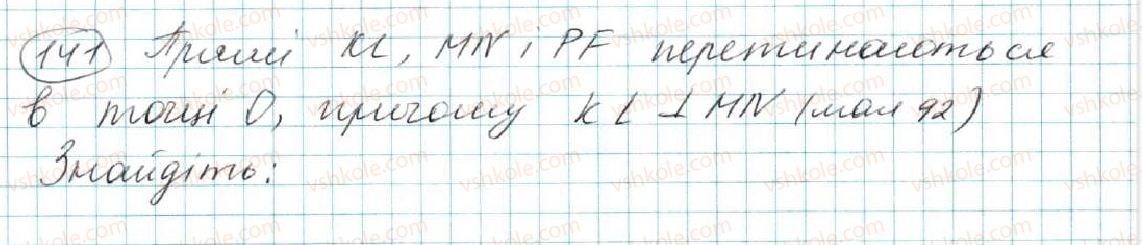 141 Прямі KL, MN і PF перетинаються
в точці О, причому KL ⊥ MN (мал 92)
Знайдіть:
vshkole.com